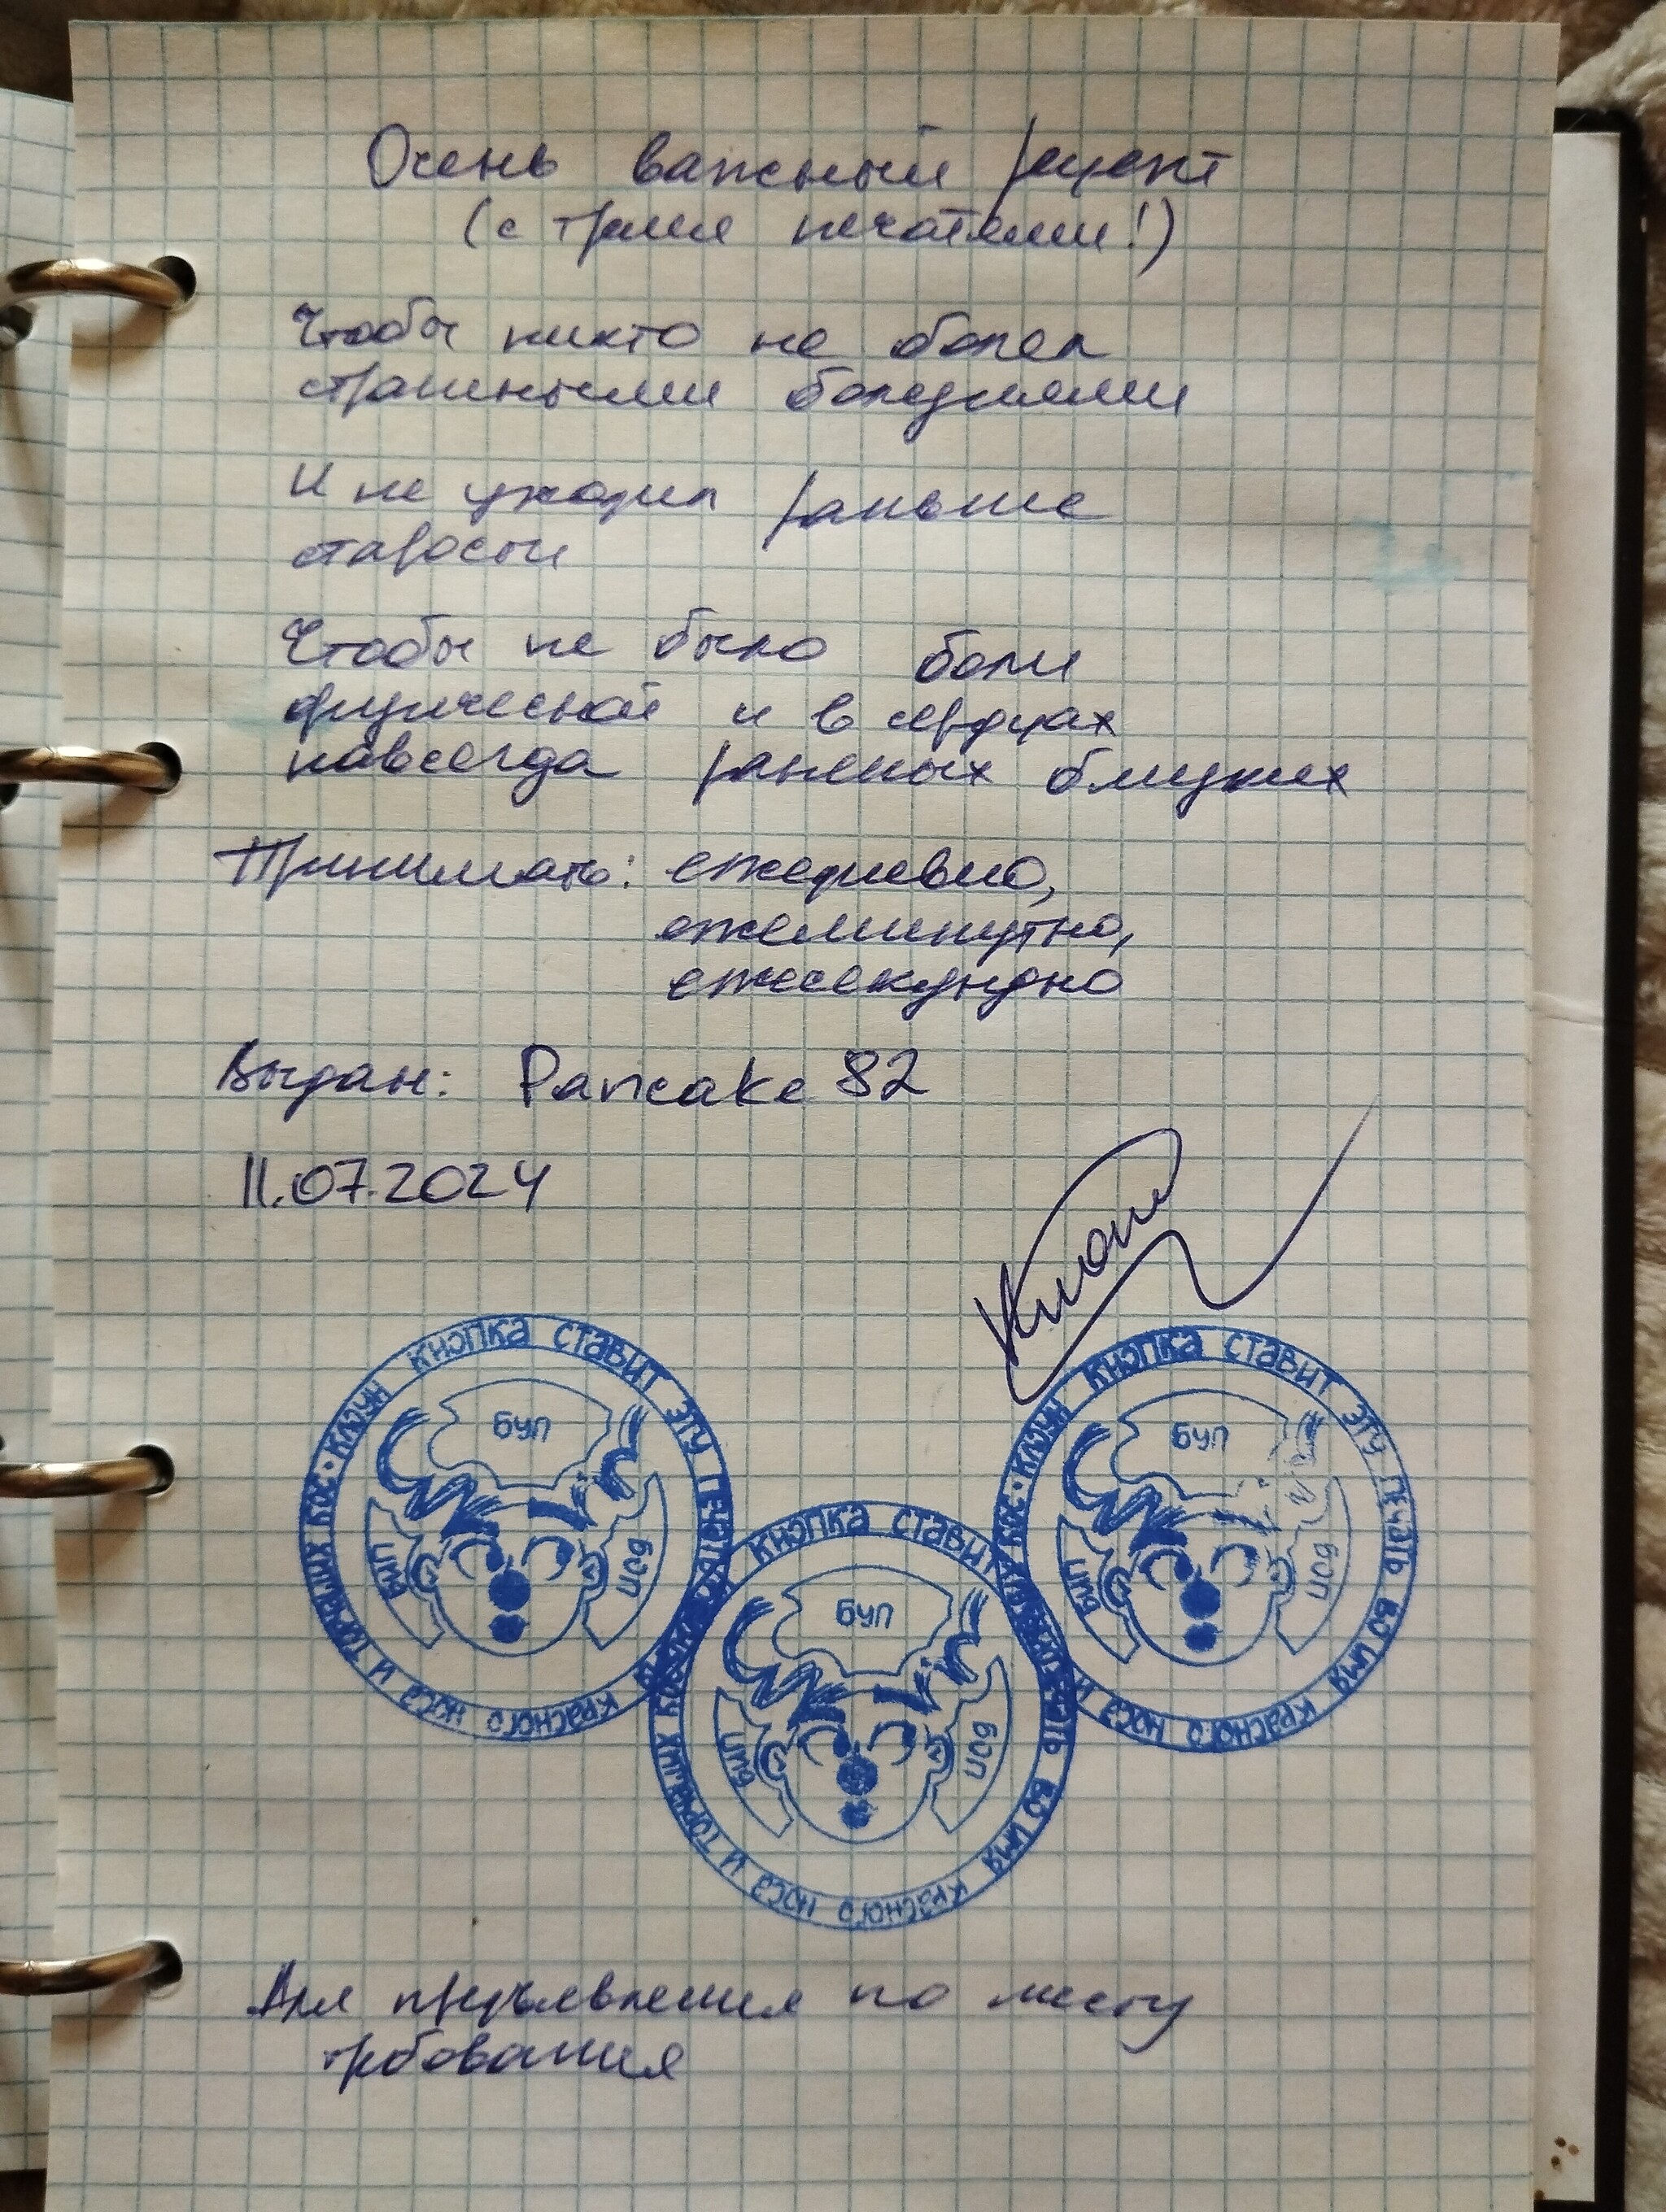 Очень важный рецепт
(с тремя печатями!)
Чтобы никто не болел
страшными болезнями
И не уходил раньше
старости
Чтобы не было боли
физической и в сердцах
навсегда раненых близких
Принимать: ежедневно,
ежеминутно,
ежесекундно
Выдан: Pancake 82
11.07.2024
КЛОУН КНОПКА СТАВИТ ЭТУ ПЕЧАТЬ ВО ИМЯ КРАСНОГО НОСА И ТОРЧАЩИХ КОС
БУП
БИП
КЛОУН КНОПКА СТАВИТ ЭТУ ПЕЧАТЬ ВО ИМЯ КРАСНОГО НОСА И ТОРЧАЩИХ КОС
БУП
БИП
КНОПКА СТАВИТ ПЕЧАТЬ ВО ИМЯ КРАСНОГО НОСА И ТОРЧАЩИХ
БУП
БИП
Для предъявления по месту
требования